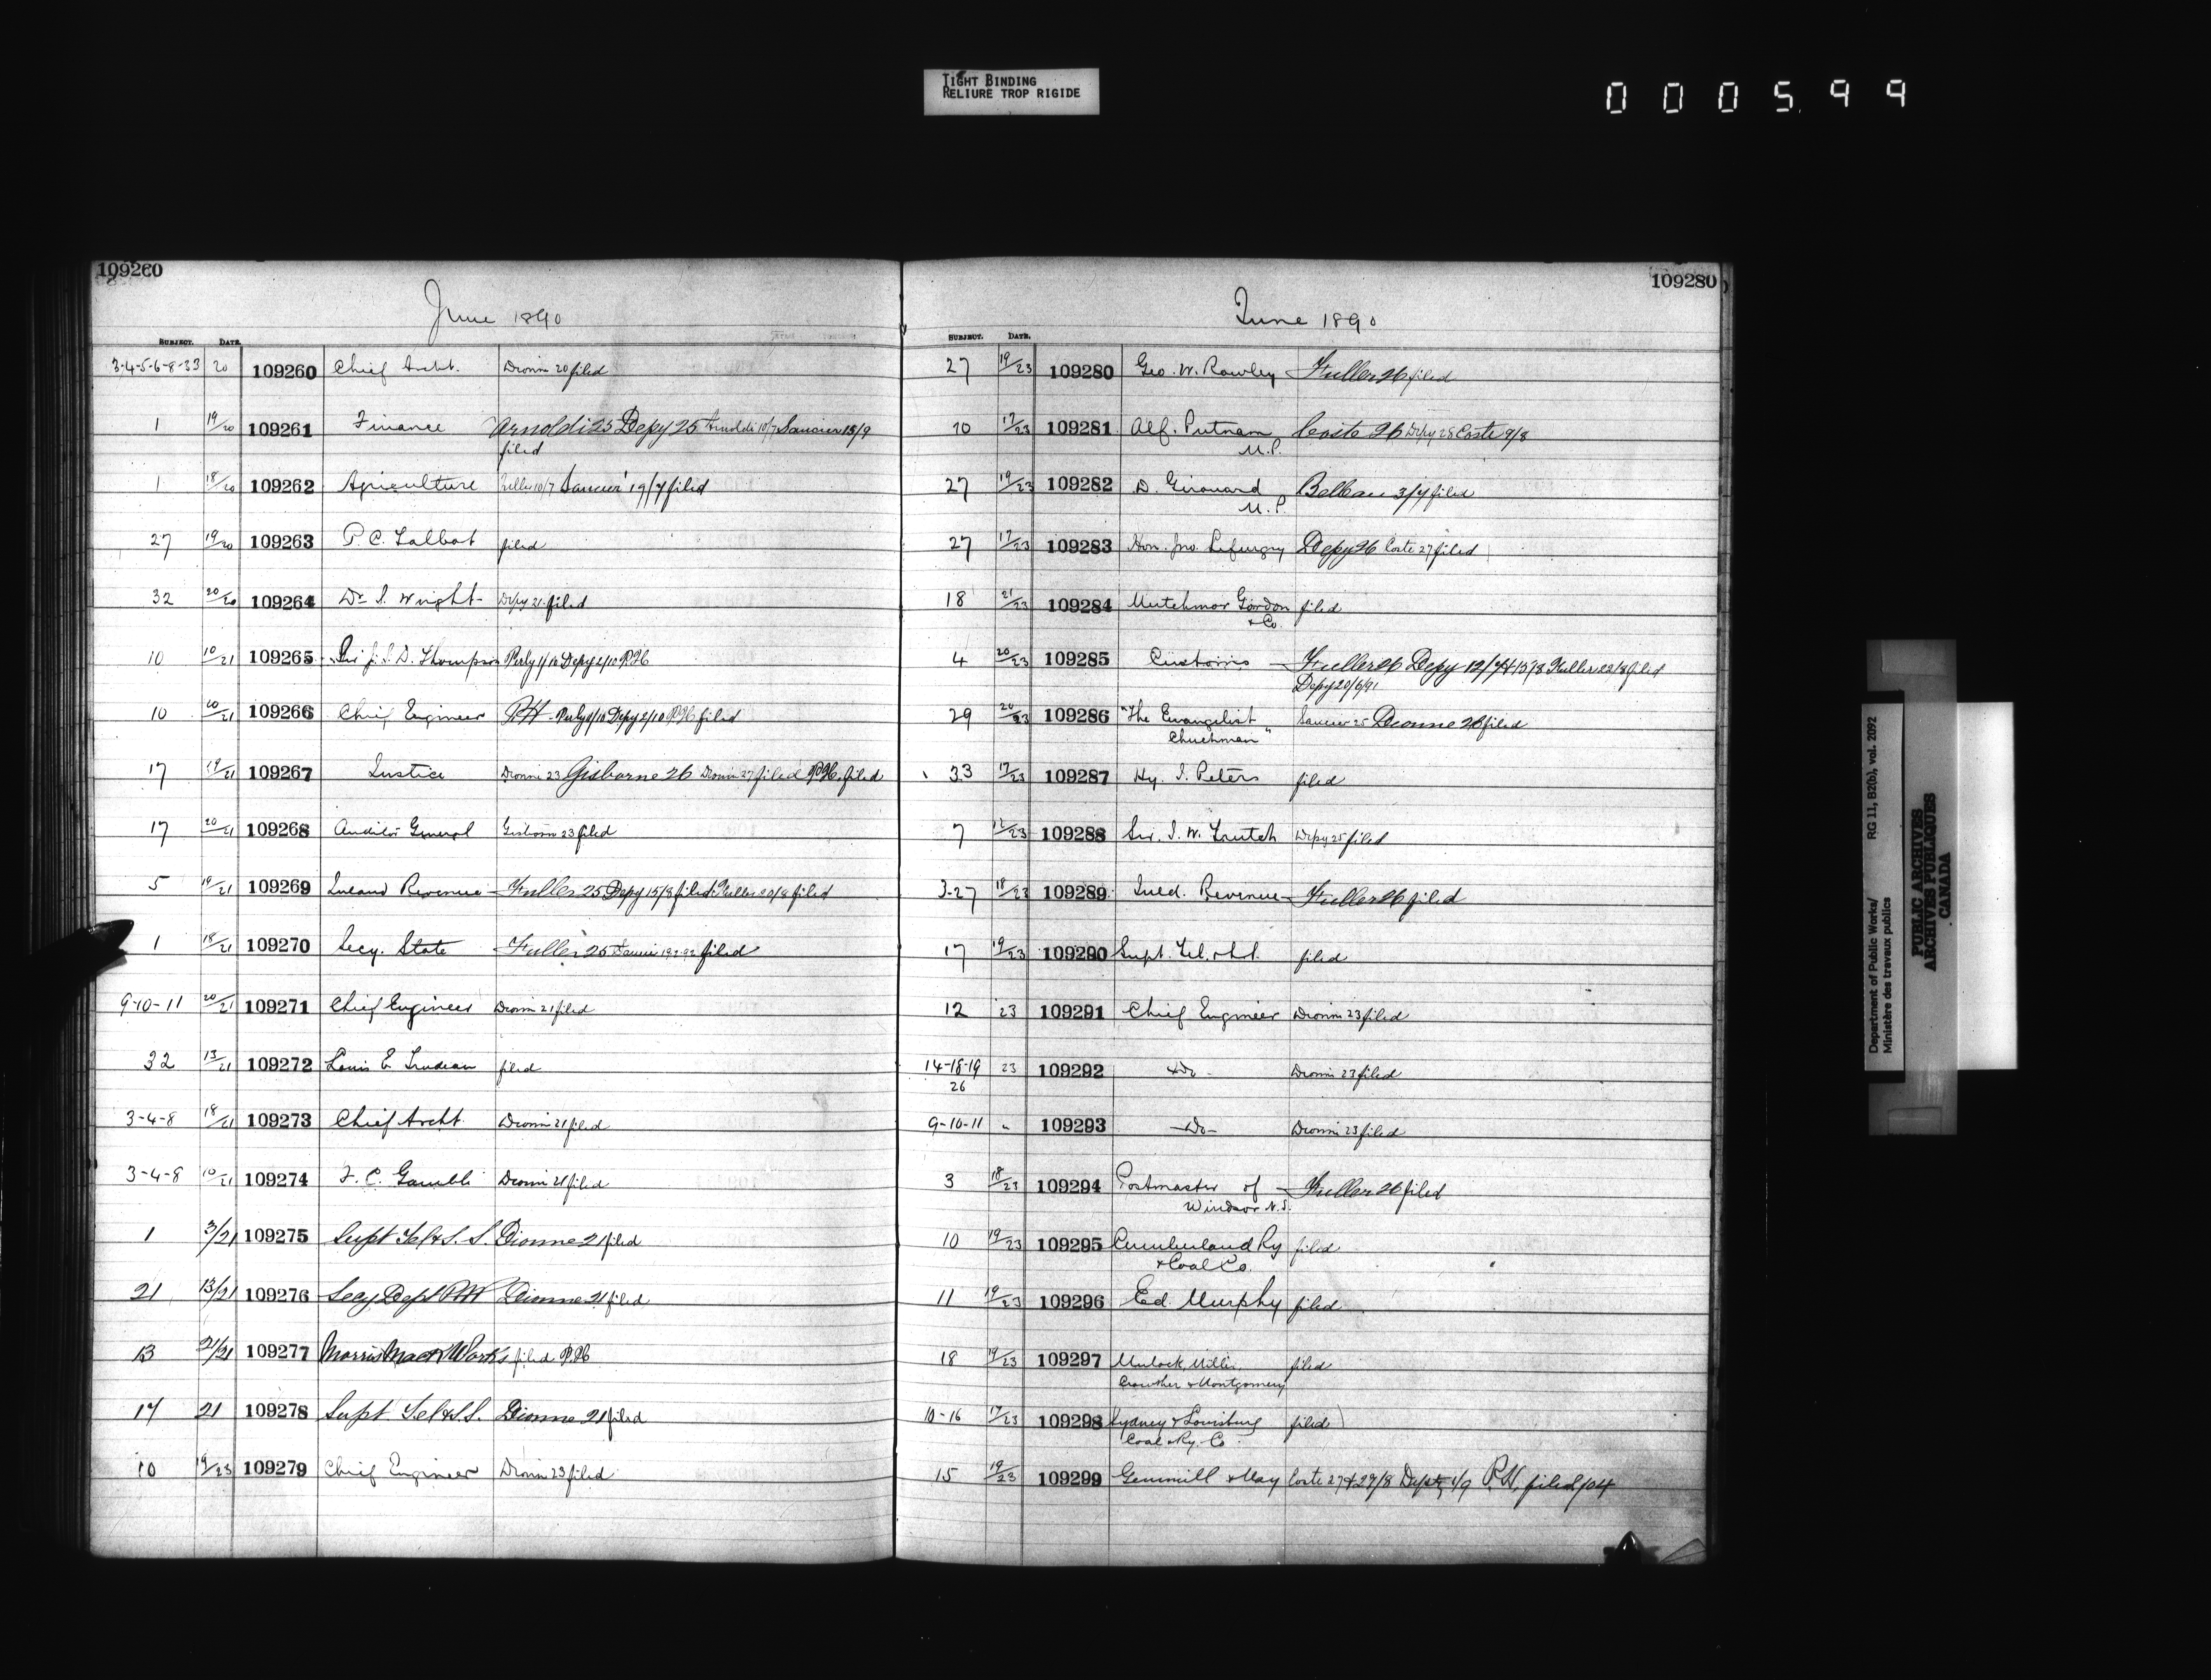 TIGHT BINDING
RELIURE TROP RIGIDE
000599
109260
June 1890
SUBJECT. DATE.
3-4-5-6-8-33 20 109260 Chief Archt. Dionne 20 filed
1 19/20 109261 Finance Arnoldi 25 Depy 25 Arnoldi 10/7 Saucier 15/9
filed
1 18/20 109262 Agriculture Fuller 10/7 Saucier 19/7 filed
27 19/20 109263 P. C. Talbot filed
32 20/20 109264 Dr. S. Wright Depy 21 filed
10 10/21 109265 Sir J. S. D. Thompson Perly 1/10 Depy 2/10 P.H.
10 20/21 109266 Chief Engineer P.H. Perly 1/10 Depy 2/10 P.H. filed
17 19/21 109267 Justice Dionne 23 Gisborne 26 Dionne 27 filed P.H. filed
17 20/21 109268 Auditor General Gisborne 23 filed
5 19/21 109269 Inland Revenue Fuller 25 Depy 15/8 filed Fuller 20/8 filed
1 18/21 109270 Secy. State Fuller 25 Saucier 19-2-92 filed
9-10-11 20/21 109271 Chief Engineer Dionne 21 filed
32 13/21 109272 Louis E Trudeau filed
3-4-8 18/21 109273 Chief Archt. Dionne 21 filed
3-4-8 10/21 109274 F. C. Gamble Dionne 21 filed
1 3/21 109275 Supt Tel & S. S. Dionne 21 filed
21 13/21 109276 Secy Dept P.W. Dionne 21 filed
13 21/21 109277 Morris Mach Works filed P.H.
17 21 109278 Supt Tel & S.S. Dionne 21 filed
10 19/23 109279 Chief Engineer Dionne 23 filed
109280
June 1890
SUBJECT. DATE.
27 19/23 109280 Geo. W. Rowley Fuller 26 filed
10 17/23 109281 Alf. Putnam Coste 26 Depy 28 Coste 9/8
M.P.
27 19/23 109282 D. Girouard Belleau 3/7 filed
M.P.
27 17/23 109283 Hon. Jno. Lefurgey Depy 26 Coste 27 filed
18 21/23 109284 Mutchmor Gordon filed
& Co.
4 20/23 109285 Customs Fuller 26 Depy 12/7 & 15/8 Fuller 22/8 filed
Depy 20/6/91
29 20/23 109286 "The Evangelist Saucier 25 Dionne 26 filed
Chuchman"
33 17/23 109287 Hy. J. Peters filed
7 12/23 109288 Sir. J. W. Trutch Depy 25 filed
3-27 18/23 109289 Inld. Revenue Fuller 26 filed
17 19/23 109290 Supt. Tel. filed
12 23 109291 Chief Engineer Dionne 23 filed
14-18-19 23 109292 -Do- Dionne 23 filed
26
9-10-11 " 109293 -Do- Dionne 23 filed
3 18/23 109294 Postmaster of Fuller 26 filed
Windsor N.S.
10 19/23 109295 Cumberland Ry filed
& Coal Co.
11 19/23 109296 Ed. Murphy filed
18 19/23 109297 Mulock, Miller filed
Crowther & Montgomery
10-16 17/23 109298 Sydney & Louisburg filed
Coal & Ry. Co.
15 19/23 109299 Gemmill & May Coste 27 & 29/8 Depty 1/9 P.H. filed /04
Department of Public Works/ RG 11, B2(b), vol. 2092
Ministère des travaux publics
PUBLIC ARCHIVES
ARCHIVES PUBLIQUES
CANADA